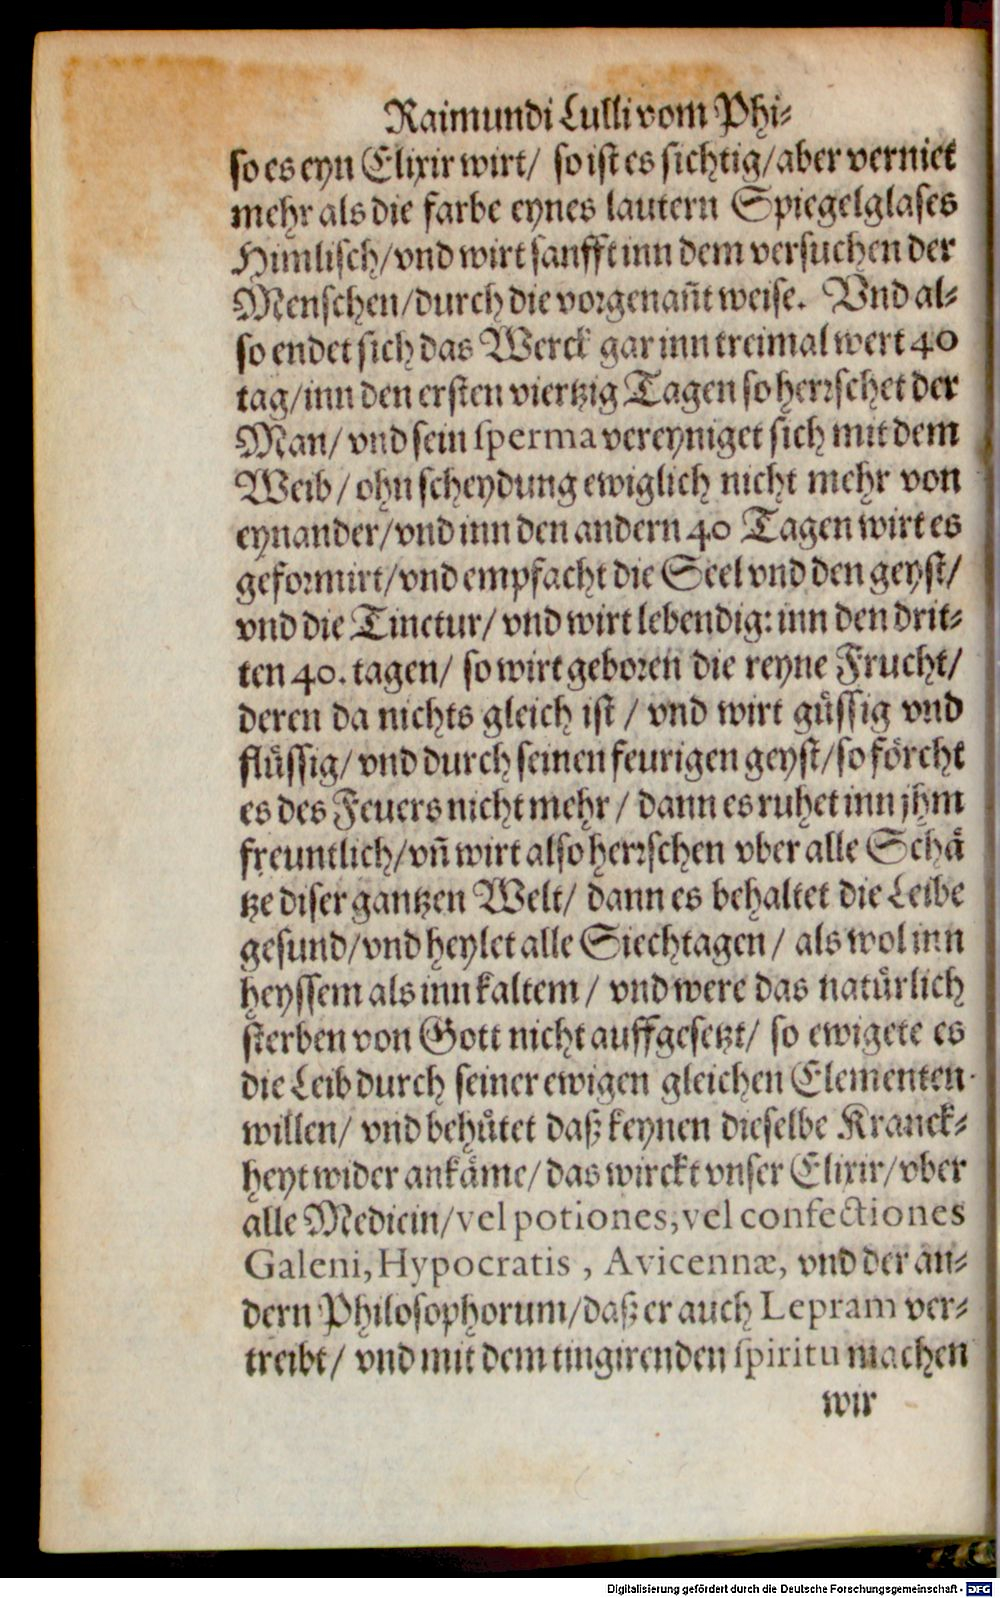 Raimundi Lulli vom Phi⸗
so es eyn Elixir wirt/ so ist es sichtig/aber verniet
mehr als die farbe eynes lautern Spiegelglases
Himlisch/vnd wirt sanfft inn dem versuchen der
Menschen/durch die vorgenañt weise. Vnd al⸗
so endet sich das Werck gar inn treimal wert 40
tag/inn den ersten viertzig Tagen so herrschet der
Man/ vnd sein sperma vereyniget sich mit dem
Weib / ohn scheydung ewiglich nicht mehr von
eynander/vnd inn den andern 40 Tagen wirt es
geformirt/vnd empfacht die Seel vnd den geyst/
vnd die Tinctur/ vnd wirt lebendig: inn den drit⸗
ten 40. tagen/ so wirt geboren die reyne Frucht/
deren da nichts gleich ist / vnd wirt güssig vnd
flüssig/ vnd durch seinen feurigen geyst/so förcht
es des Feuers nicht mehr / dann es ruhet inn jhm
freuntlich/vñ wirt also herrschen vber alle Schä
tze diser gantzen Welt/ dann es behaltet die Leibe
gesund/vnd heylet alle Siechtagen / als wol inn
heyssem als inn kaltem / vnd were das natürlich
sterben von Gott nicht auffgesetzt/ so ewigete es
die Leib durch seiner ewigen gleichen Elementen
willen/ vnd behütet daß keynen dieselbe Kranck⸗
heyt wider ankäme/das wirckt vnser Elixir/vber
alle Medicin/vel potiones, vel confectiones
Galeni, Hypocratis , Avicennæ, vnd der an⸗
dern Philosophorum/daß er auch Lepram ver⸗
treibt/ vnd mit dem tingirenden spiritu machen
wir
Digitalisierung gefördert durch die Deutsche Forschungsgemeinschaft - DFG